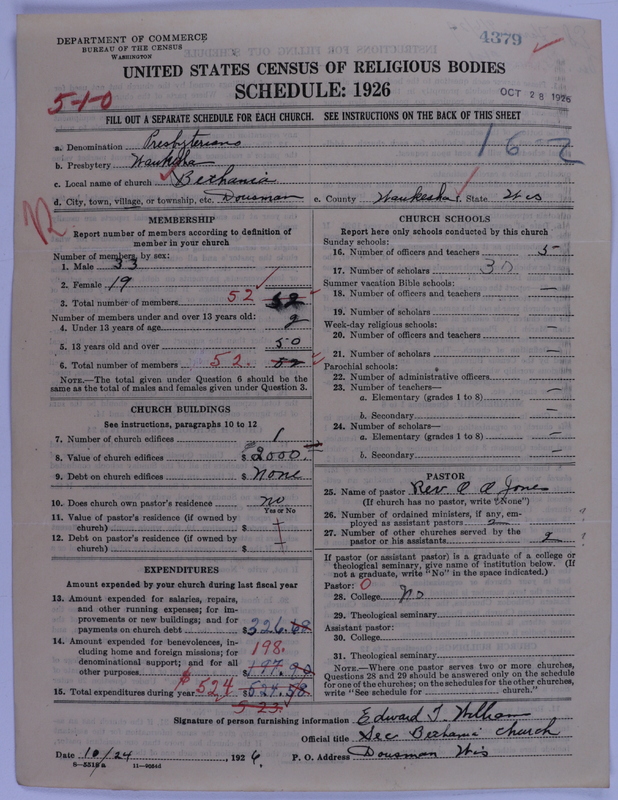 DEPARTMENT OF COMMERCE
BUREAU OF THE CENSUS
WASHINGTON
4379
UNITED STATES CENSUS OF RELIGIOUS BODIES
SCHEDULE: 1926
OCT 28 1926
5-1-0
FILL OUT A SEPARATE SCHEDULE FOR EACH CHURCH. SEE INSTRUCTIONS ON THE BACK OF THIS SHEET
162
a. Denomination Presbyterians
b. Presbytery Waukesha
c. Local name of church Bethania
d. City, town, village, or township, etc. Dousman e. County Waukesha f. State Wis
MEMBERSHIP
Report number of members according to definition of
member in your church
Number of members, by sex:
1. Male 33
2. Female 19
3. Total number of members 52 52
Number of members under and over 13 years old:
4. Under 13 years of age 2
5. 13 years old and over 50
6. Total number of members 52. 52
NOTE.—The total given under Question 6 should be the
same as the total of males and females given under Question 3.
CHURCH BUILDINGS
See instructions, paragraphs 10 to 12
7. Number of church edifices 1
8. Value of church edifices $ 2000.
9. Debt on church edifices $ None
10. Does church own pastor's residence no
Yes or No
11. Value of pastor's residence (if owned by
church) $
12. Debt on pastor's residence (if owned by
church) $
EXPENDITURES
Amount expended by your church during last fiscal year
13. Amount expended for salaries, repairs,
and other running expenses; for im-
provements or new buildings; and for
payments on church debt $ 326.
14. Amount expended for benevolences, in-
cluding home and foreign missions; for
denominational support; and for all
other purposes
198.
$ 197.
15. Total expenditures during year $524 $
523.
CHURCH SCHOOLS
Report here only schools conducted by this church
Sunday schools:
16. Number of officers and teachers 5
17. Number of scholars 30
Summer vacation Bible schools:
18. Number of officers and teachers —
19. Number of scholars —
Week-day religious schools:
20. Number of officers and teachers —
21. Number of scholars —
Parochial schools:
22. Number of administrative officers
23. Number of teachers—
a. Elementary (grades 1 to 8) —
b. Secondary —
24. Number of scholars—
a. Elementary (grades 1 to 8) —
b. Secondary —
PASTOR
25. Name of pastor Rev. O A Jones
(If church has no pastor, write "None")
26. Number of ordained ministers, if any, em-
ployed as assistant pastors
27. Number of other churches served by the
pastor or his assistants
If pastor (or assistant pastor) is a graduate of a college or
theological seminary, give name of institution below. (If
not a graduate, write "No" in the space indicated.)
Pastor: 0
28. College No
29. Theological seminary
Assistant pastor:
30. College
31. Theological seminary
NOTE.—Where one pastor serves two or more churches,
Questions 28 and 29 should be answered only on the schedule
for one of the churches; on the schedules for the other churches,
write "See schedule for church."
Signature of person furnishing information Edward T.
Official title Sec Bethania church
Date 10/24, 1926 P. O. Address Dousman Wis
8—5519a 11—9684d